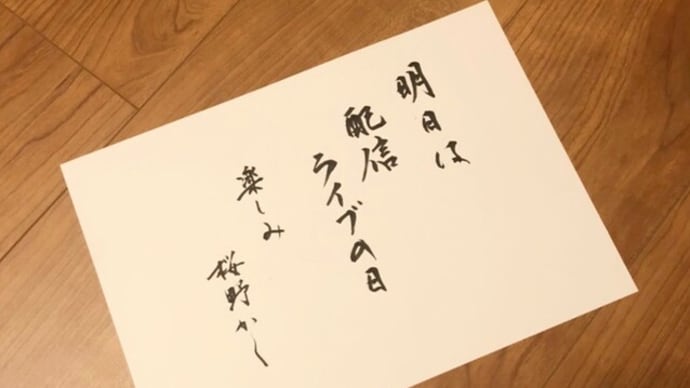 明日は
配信
ライブの日
楽しみ
桜野かし